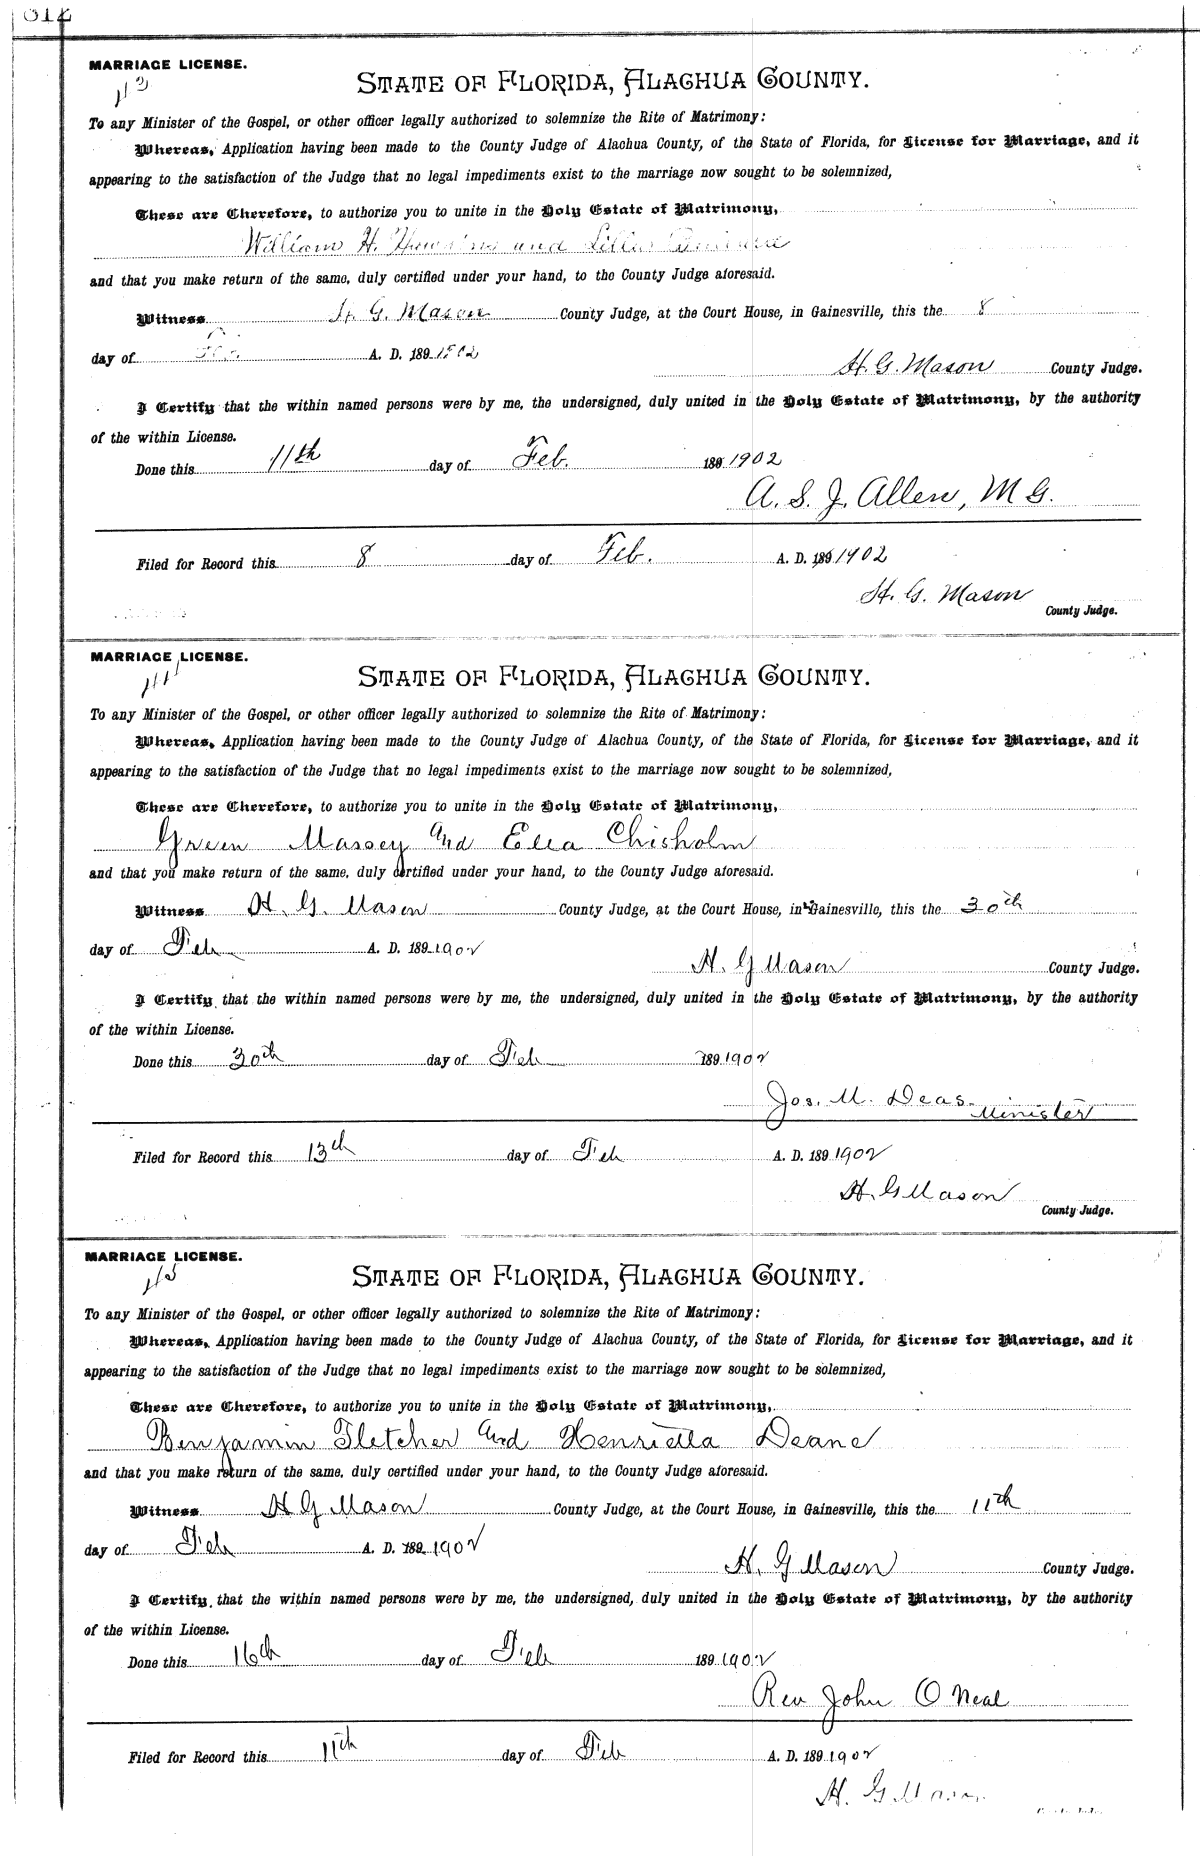 MARRIAGE LICENSE.
STATE OF FLORIDA, ALACHUA COUNTY.
To any Minister of the Gospel, or other officer legally authorized to solemnize the Rite of Matrimony:
Whereas, Application having been made to the County Judge of Alachua County, of the State of Florida, for License for Marriage, and it
appearing to the satisfaction of the Judge that no legal impediments exist to the marriage now sought to be solemnized,
These are Therefore, to authorize you to unite in the Holy Estate of Matrimony,
William H. and
and that you make return of the same, duly certified under your hand, to the County Judge aforesaid.
Witness H. G. Mason County Judge, at the Court House, in Gainesville, this the 8
day of A. D. 189 1902
H. G. Mason County Judge.
I Certify that the within named persons were by me, the undersigned, duly united in the Holy Estate of Matrimony, by the authority
of the within License.
Done this 11th day of Feb. 189 1902
A. S. J. Allen, M G.
Filed for Record this 8 day of Feb. A. D. 189 1902
H. G. Mason
County Judge.
MARRIAGE LICENSE.
STATE OF FLORIDA, ALACHUA COUNTY.
To any Minister of the Gospel, or other officer legally authorized to solemnize the Rite of Matrimony:
Whereas, Application having been made to the County Judge of Alachua County, of the State of Florida, for License for Marriage, and it
appearing to the satisfaction of the Judge that no legal impediments exist to the marriage now sought to be solemnized,
These are Therefore, to authorize you to unite in the Holy Estate of Matrimony,
Green Massey and Ella Chisholm
and that you make return of the same, duly certified under your hand, to the County Judge aforesaid.
Witness H. G. Mason County Judge, at the Court House, in Gainesville, this the 30th
day of Feb A. D. 189 1902
H. G Mason County Judge.
I Certify that the within named persons were by me, the undersigned, duly united in the Holy Estate of Matrimony, by the authority
of the within License.
Done this 30th day of Feb 189 1902
Jos. M. Deas Minister
Filed for Record this 13th day of Feb A. D. 189 1902
H. G Mason
County Judge.
MARRIAGE LICENSE.
45
STATE OF FLORIDA, ALACHUA COUNTY.
To any Minister of the Gospel, or other officer legally authorized to solemnize the Rite of Matrimony:
Whereas, Application having been made to the County Judge of Alachua County, of the State of Florida, for License for Marriage, and it
appearing to the satisfaction of the Judge that no legal impediments exist to the marriage now sought to be solemnized,
These are Therefore, to authorize you to unite in the Holy Estate of Matrimony,
Benjamin Fletcher and Henrietta Deane
and that you make return of the same, duly certified under your hand, to the County Judge aforesaid.
Witness H G Mason County Judge, at the Court House, in Gainesville, this the 11th
day of Feb A. D. 189 1902
H. G Mason County Judge.
I Certify, that the within named persons were by me, the undersigned, duly united in the Holy Estate of Matrimony, by the authority
of the within License.
Done this 16th day of Feb 189 1902
Rev John O Neal
Filed for Record this 11th day of Feb A. D. 189 1902
H. G Mason